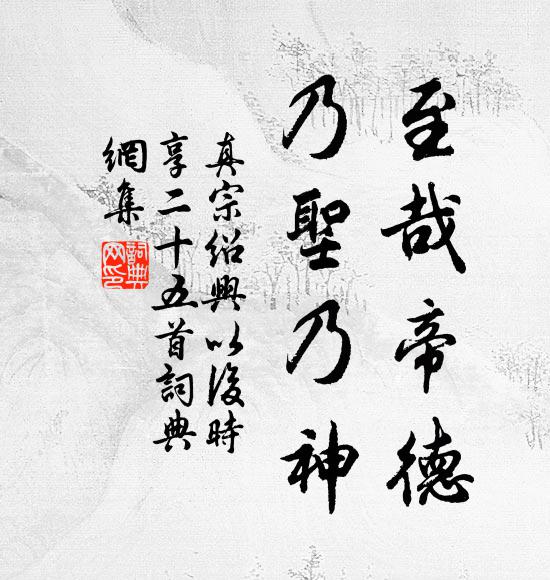 至哉帝德
乃聖乃神
真宗紹興以後時
享二十五首詞典
網集
詞典網印